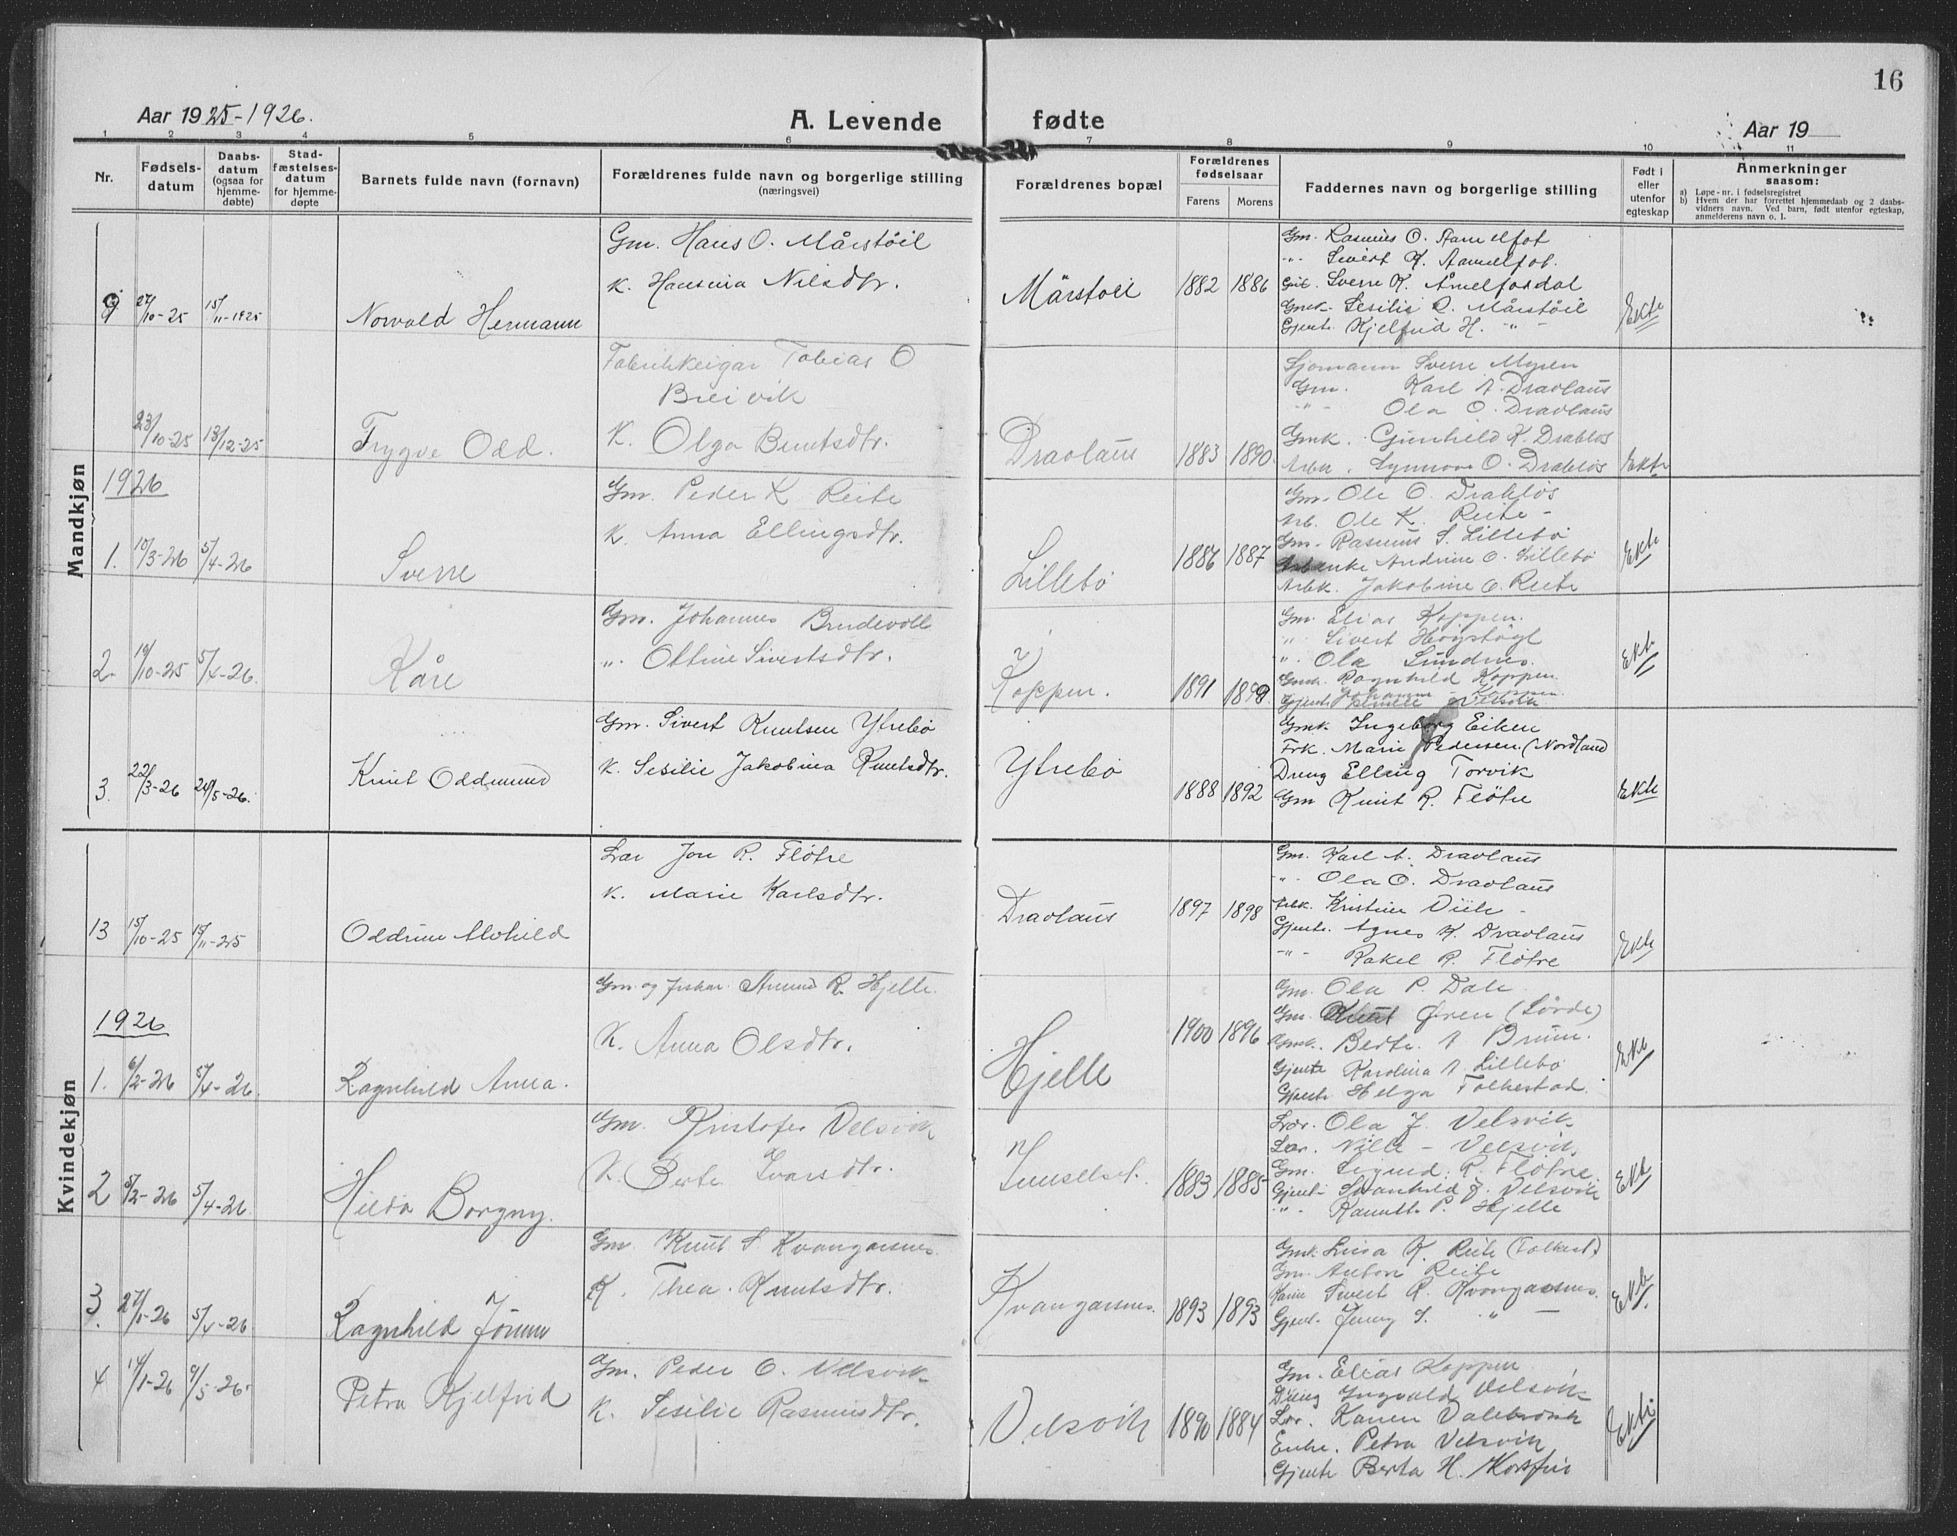 16
Aar 1925-1926.
A. Levende fødte
Aar 19
1 2 3 4 5 6 7 8 9 10 11
Nr.
Fødsels-
datum
Daabs-
datum
(ogsaa for
hjemme-
døbte)
Stad-
fæstelses-
datum
for hjemme-
døpte
Barnets fulde navn (fornavn)
Forældrenes fulde navn og borgerlige stilling
(næringsvei)
Forældrenes bopæl
Forældrenes
fødselsaar
Farens Morens
Faddernes navn og borgerlige stilling
Født i
eller
utenfor
egteskap
Anmerkninger
saasom:
a) Løpe-nr. i fødselsregistret
b) Hvem der har forrettet hjemmedaab og 2 daabs-
vidners navn. Ved barn, født utenfor egteskap,
anmelderens navn o. l.
Mandkjøn
9 27/10-25 15/11-1925 Norvald Hermann
Gm. Hans O. Mårstöil
K. Hansina Nilsdtr.
Mårstöil 1882 1886
Gm. Rasmus O. Aamelfot
"- Sivert K. Aamelfot.
Sverre K. Åmelfotdal
Gmk. Sesilie O. Mårstöil
Gjente Kjelfrid H. " -
Ekte
23/10-25 13/12-25 Trygve Odd.
Fabrikkeigar Tobias O
Breivik
K. Olga Bentsdtr.
Dravlaus 1883 1890
Sjomann Sverre Myren
Gm. Karl A. Dravlaus
"- Ola O. Dravlaus
Gmk. Gunhild K. Drabløs
Arbk. Synnove O. Drabløs
Ekte
1926
1. 10/3-26 5/4-26 Sverre
Gm. Peder K Reite
K. Anna Ellingsdtr.
Lillebø 1886 1887
Gm. Ole O. Drabløs
Arb. Ole K. Reite -
Gm. Rasmus S. Lillebø
Andrine O. Lillebø
Arbk. Jakobine O. Reite
Ekte
2. 19/10-25 5/4-26. Kåre
Gm. Johannes Brudevoll
". Ottine Sivertsdtr.
Koppen. 1891 1899
Gm. Elias Koppen.
". Sivert Høgstøyl
". Ola Sundnes.
Gmk. Ragnhild Koppen
Johanne - Koppen
Gjente Velsvik
Ekte
3. 22/3-26 24/5-26. Knut Oddmund
Gm. Sivert Knutsen Ytrebø
K. Sesilie Jakobina Knutsdtr.
Ytrebø 1888 1892
Gmk Ingeborg Eiken
Frk. Marie Pedersen (Nordland
Dreng Elling Torvik
Gm Knut R. Fløtre
Ekte
Kvindekjøn
13 15/10-25 15/11-25 Oddrun Alvhild
Lær Jon R. Fløtre
K. Marie Karlsdtr.
Dravlaus 1897 1898
Gm. Karl A. Dravlaus
"- Ola O. Dravlaus
Kristine Viik -
Gjente. Agnes K. Dravlaus
"- Rakel R. Fløtre
Ekte
1926
1. 6/2-26 5/4-26. Ragnhild Anna.
Gm. og fiskar Amund R. Hjelle.
K. Anna Olsdtr.
Hjelle 1900 1896
Gm. Ola P. Dale
Gm. Knut Øren (Sörde)
Gmk. Berte A Bruun.
Gjente Karolina A Lillebø
Gjente Helga Folkestad.
Ekte
2 5/2-26 5/4-26. Hilda Borgny.
Gm. Kristofer Velsvik
K. Berte Ivarsdtr.
Lunselset. 1883 1885
Lær. Ola J. Velsvik
Lær. Nille - Velsvik.
Gm. Sigurd R. Fløtre.
Gjente Svanhild J. Velsvik
"- P. Hjelle
Ekte
3. 27/1-26 5/4-26 Ragnhild Jörunn
Gm. Knut S. Kvangarsnes.
K. Thea. Knutsdtr.
Kvangarsnes. 1893 1893
Gmk Lina K. Reite (Folkest.)
Gm. Anton Reite
Sivert R. Kvangarsnes.
Gjente Jenny S. " —
Ekte.
4 14/1-26 9/5-26. Petra Kjelfrid
Gm. Peder O. Velsvik
K. Sesilie Rasmusdtr.
Velsvik 1890 1884
Gm. Elias Koppen
Dreng Ingvald Velsvik
Lær. Karen
Enke. Petra Velsvik
Gjente Berta H.
Ekte